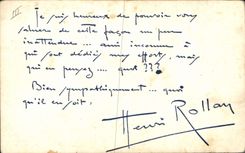 III
Je suis heureux de pouvoir vous
saluer de cette façon un peu
inattendue ... ami inconnu à
qui sont dédiés mes efforts, mais
qui en pensez .... quoi ???
Bien sympathiquement ... quoi
qu'il en soit.
Henri Rollan